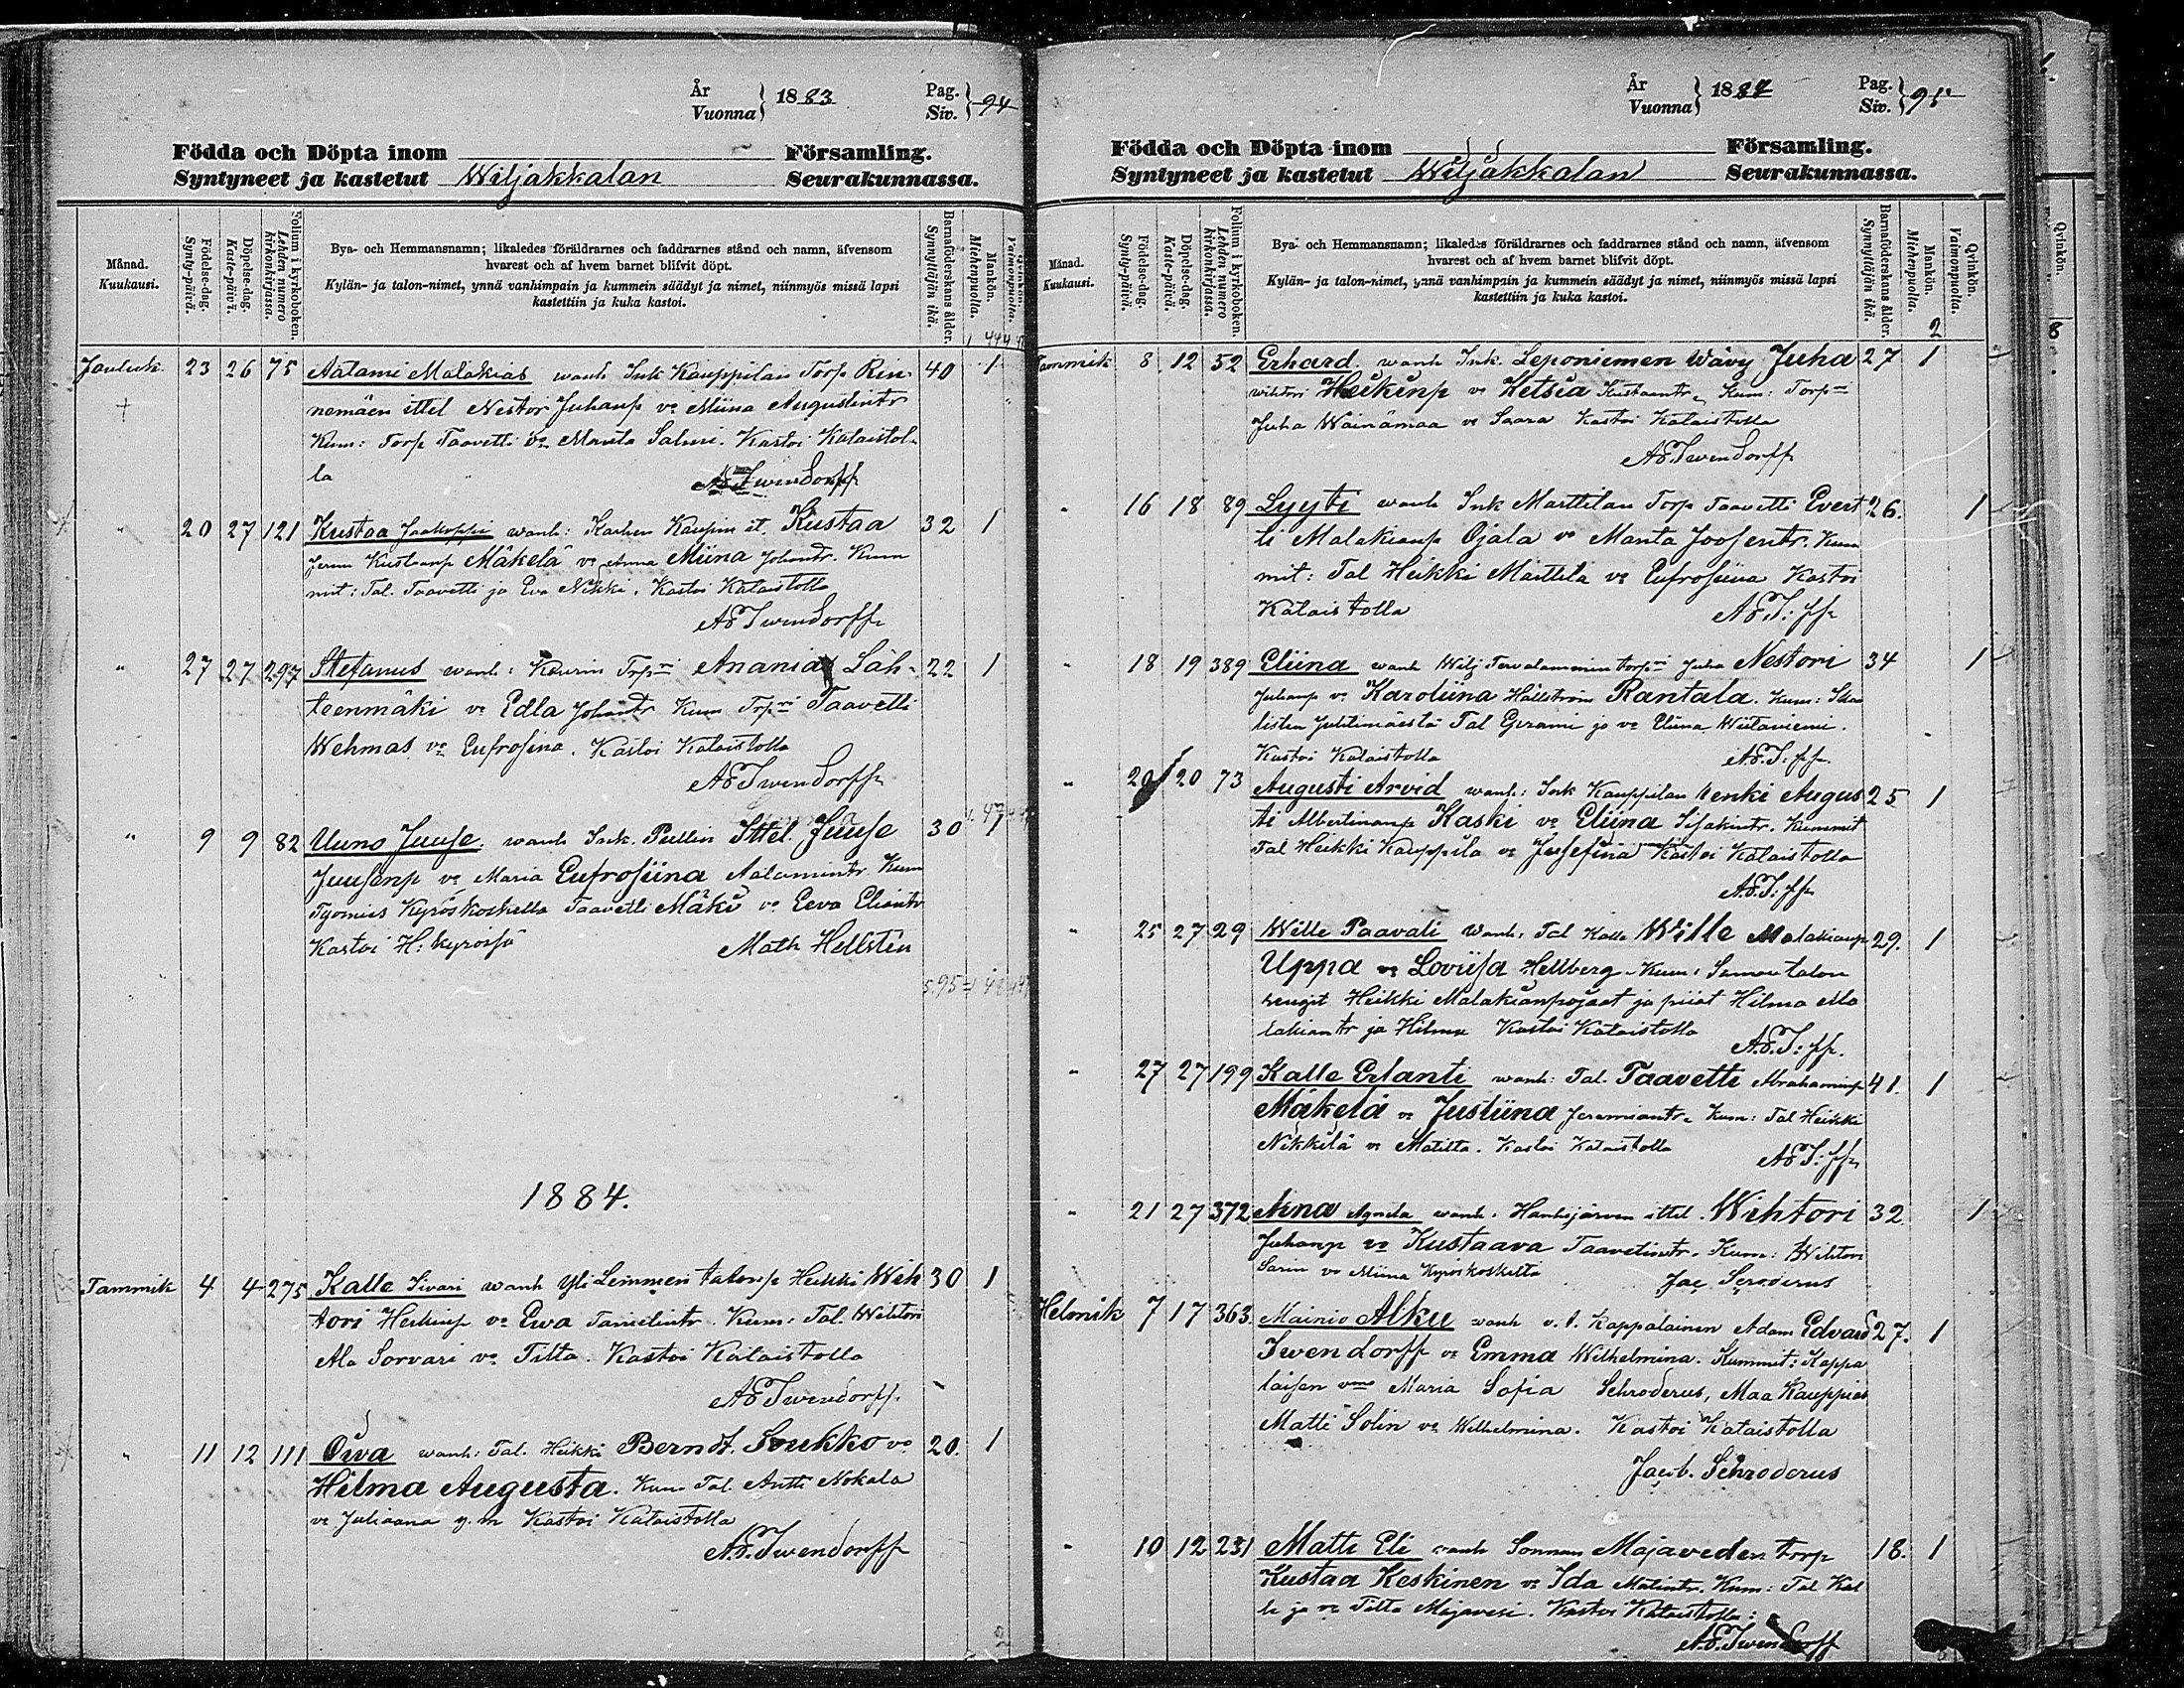 År
Vuonna } 1883
Pag.
Siv. } 94
Födda och Döpta inom Församling.
Syntyneet ja kastetut Wiljakkalan Seurakunnassa.
Månad.
Kuukausi.
Födelse-dag.
Synty-päivä.
Döpelse-dag.
Kaste-päivä.
Folium i kyrkoboken.
Lehden numero kirkonkirjassa.
Bya- och Hemmansnamn; likaledes föräldrarnes och faddrarnes stånd och namn, äfvensom
hvarest och af hvem barnet blifvit döpt.
Kylän- ja talon-nimet, ynnä vanhimpain ja kummein säädyt ja nimet, niinmyös missä lapsi
kastettiin ja kuka kastoi.
Barnaföderskans ålder.
Synnyttäjän ikä.
Mankön.
Miehenpuolia.
Qvinkön.
Vaimonpuolia.
Jouluk 23 26 75 Aatami Malakias wanh Ink Kauppilan Torp Rin- 40 1
nemäen ittel Nestor Juhanp vo Miina Augustintr
Kum: Torp Taavetti vo Manta Salmi. Kastoi Kataistol-
la
AE Iwendorff
" 20 27 121 Kustaa Jaakoppi wanh: Karhen Kaupin it. Kustaa 32 1
Jerem Kustaanp Mäkelä vo Anna Miina Johantr. Kum
mit: Tal. Taavetti ja Eva Nikki. Kastoi Kataistolla
AE Iwendorff
" 27 27 297 Stefanus wanh: Kaurin Trpri Ananias Läh- 22 1
teenmäki vo Edla Johantr Kum Trpri Taavetti
Wehmas vo Eufrosina. Kastoi Kataistolla
AE Iwendorff
" 9 9 82 Uuno Juuse. wanh Ink. Pullin Ittel. Juuse 30 1
Juusenp vo Maria Eufrosiina Aatamintr Kum
Työmies Kyröskoskella Taavetti Mäki vo Eeva Eliantr
Kastoi H: kyrössä Math Hellstén
1884.
Tammik 4 4 275 Kalle Iivari wanh Yli Lemmen talonp Heikki Wih 30 1
tori Heikinp vo Ewa Tanielintr Kum: Tal. Wihtori
Ala Sorvari vo Tilta. Kastoi Kataistolla
AE Iwendorff
" 11 12 111 Oiva wanh: Tal. Heikki Bernd. Soukko vo 20. 1
Hilma Augusta. Kum Tal. Antti Nokala
vo Juliaana y. m Kastoi Kataistolla
A.E. Iwendorff
År
Vuonna } 1884
Pag.
Siv. } 95
Födda och Döpta inom Församling.
Syntyneet ja kastetut Wiljakkalan Seurakunnassa.
Månad.
Kuukausi.
Födelse-dag.
Synty-päivä.
Döpelse-dag.
Kaste-päivä.
Folium i kyrkoboken.
Lehden numero kirkonkirjassa.
Bya- och Hemmansnamn; likaledes föräldrarnes och faddrarnes stånd och namn, äfvensom
hvarest och af hvem barnet blifvit döpt.
Kylän- ja talon-nimet, ynnä vanhimpain ja kummein säädyt ja nimet, niinmyös missä lapsi
kastettiin ja kuka kastoi.
Barnaföderskans ålder.
Synnyttäjän ikä.
Mankön.
Miehenpuolia.
Qvinkön.
Vaimonpuolia.
2
Tammik 8 12 52 Erhard wanh Ink. Leponiemen Wävy Juha 27 1
wihtori Heikinp vo Hetsia Kustaantr Kum: Torp
Juha Wainämaa vo Saara Kastoi Kataistolla
AE Iwendorff
" 16 18 89 Lyyti wanh Ink Marttilan Torp Taavetti Evert 26. 1
ti Malakianp Ojala vo Manta Joosentr. Kum
mit: Tal Heikki Marttila vo Eufrosiina Kastoi
Kataistolla AE I: ff
" 18 19 389 Eliina wanh Wilj Tervalammin torpri Juha Nestori 34 1
Juhanp vo Karoliina Hällström Rantala. Kum:
Tal ja vo Eliina Wiitaniemi.
Kastoi Kataistolla A.E. I: ff
" 20 20 73 Augusti Arvid wanh: Ink Kauppilan renki Augus 25 1
ti Albertinanp Kaski vo Eliina Iisakintr. Kummit
Tal Heikki Kauppila vo Josefina Kastoi Kataistolla
A.E. I: ff
" 25 27 29 Wille Paavali wanh: Tal Kalle Wille Malakianp 29. 1
Uppa vo Loviisa Hellberg. Kum: Samou talon
rengit Heikki Malakianpojaat ja piiat Hilma Ma
lakiantr ja Hilma Kastoi Kataistolla
A.E. I: ff.
" 27 27 199 Kalle Erlanti wanh: Tal. Taavetti Abrahaminp 41. 1
Mäkelä vo Justiina Jeremiantr Kum: Tal Heikki
Nikkilä vo Matilta. Kastoi Kataistolla
AE I: ff
" 21 27 372 Anna Agneta wanh. Hanhijärven ittel. Wihtori 32 1
Juhanp vo Kustaava Taavetintr. Kum: Wihtori
Sarin vo Miina Kyröskoskelta Jac Scroderus
Helmik 7 17 363. Mainio Alku wanh v. t. Kappalainen Adam Edvard 27. 1
Iwendorff vo Emma Wilhelmina. Kummit: Kappa
laisen vmo Maria Sofia Schroderus, Maa Kauppias
Matti Solin vo Wilhelmina. Kastoi Kataistolla
Jacob. Schroderus
" 10 12 231 Matti Eli wanh Sonnan Majaveden torp 18. 1
Kustaa Keskinen vo Ida Matintr. Kum: Tal Kal
le ja vo Tilta Majavesi. Kastoi Kataistolla:
A.E. Iwendorff
Qvinkön.
8